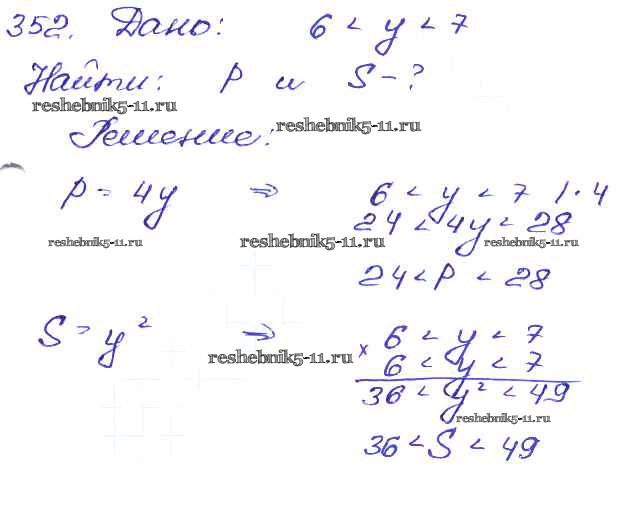 352. Дано: 6 < y < 7
Найти: P и S - ?
reshebnik5-11.ru
Решение: reshebnik5-11.ru
P = 4y ⇒ 6 < y < 7 | · 4
24 < 4y < 28
reshebnik5-11.ru reshebnik5-11.ru reshebnik5-11.ru
24 < P < 28
S = y² ⇒ 6 < y < 7
reshebnik5-11.ru × 6 < y < 7
36 < y² < 49
reshebnik5-11.ru
36 < S < 49